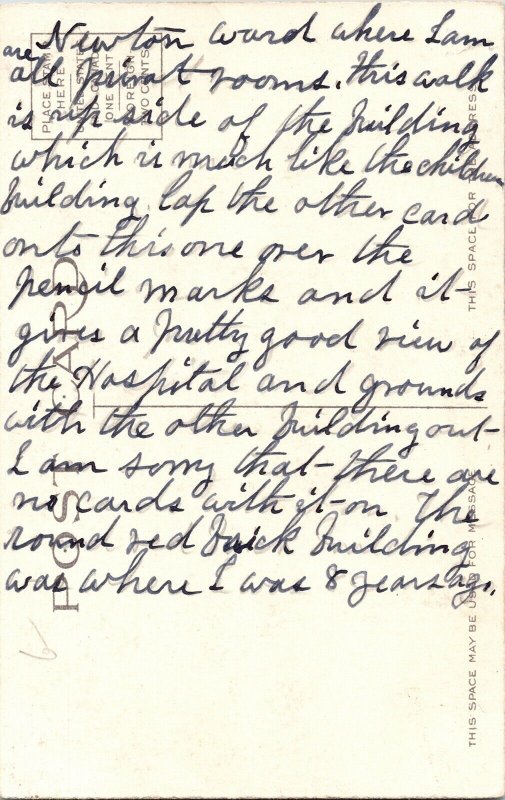 Newton ward where I am
are all privat rooms. this walk
is rip side of the building
which is much like the children
building lap the other card
onto this one over the
pencil marks and it
gives a pretty good view of
the Hospital and grounds
with the other building out
I am sorry that there are
no cards with it on The
round red brick building
was where I was 8 years ago.
PLACE STAMP
HERE
UNITED STATES
ONE CENT
TWO CENTS
POST CARD
THIS SPACE FOR ADDRESS
THIS SPACE MAY BE USED FOR MESSAGE
6